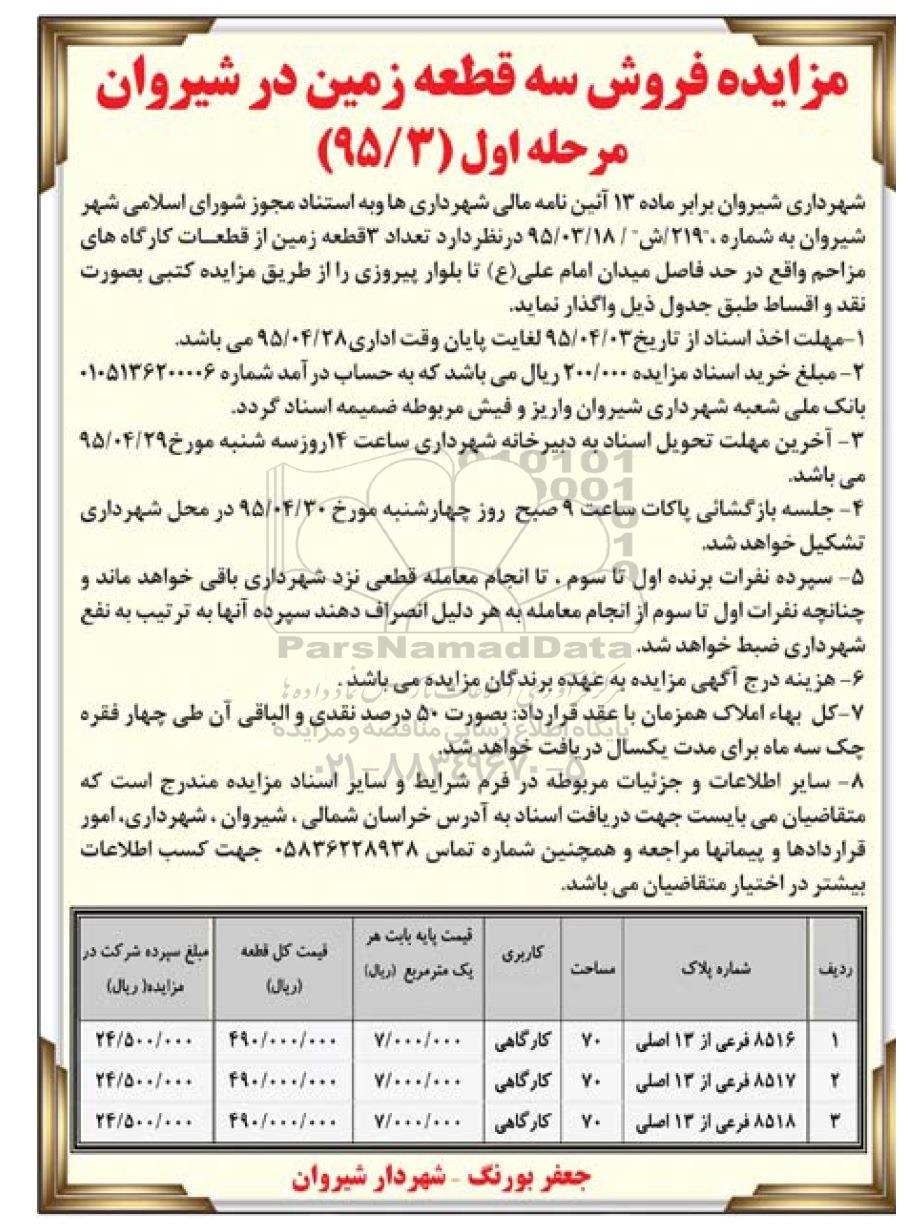 مزایده فروش سه قطعه زمین در شیروان
مرحله اول (۹۵/۳)
شهرداری شیروان برابر ماده ۱۳ آئین نامه مالی شهرداری ها وبه استناد مجوز شورای اسلامی شهر
شیروان به شماره ،"۲۱۹/ش" / ۹۵/۰۳/۱۸ درنظر دارد تعداد ۳قطعه زمین از قطعات کارگاه های
مزاحم واقع در حد فاصل میدان امام علی(ع) تا بلوار پیروزی را از طریق مزایده کتبی بصورت
نقد و اقساط طبق جدول ذیل واگذار نماید.
۱-مهلت اخذ اسناد از تاریخ۹۵/۰۴/۰۳ لغایت پایان وقت اداری۹۵/۰۴/۲۸ می باشد.
۲- مبلغ خرید اسناد مزایده ۲۰۰/۰۰۰ ریال می باشد که به حساب در آمد شماره ۰۱۰۵۱۳۶۲۰۰۰۰۶
بانک ملی شعبه شهرداری شیروان واریز و فیش مربوطه ضمیمه اسناد گردد.
۳- آخرین مهلت تحویل اسناد به دبیرخانه شهرداری ساعت ۱۴روزسه شنبه مورخ۹۵/۰۴/۲۹
می باشد.
۴- جلسه بازگشائی پاکات ساعت ۹ صبح روز چهارشنبه مورخ ۹۵/۰۴/۳۰ در محل شهرداری
تشکیل خواهد شد.
۵- سپرده نفرات برنده اول تا سوم ، تا انجام معامله قطعی نزد شهرداری باقی خواهد ماند و
چنانچه نفرات اول تا سوم از انجام معامله به هر دلیل انصراف دهند سپرده آنها به ترتیب به نفع
شهرداری ضبط خواهد شد.
ParsNamadData
۶- هزینه درج آگهی مزایده به عهده برندگان مزایده می باشد .
۷-کل بهاء املاک همزمان با عقد قرارداد: بصورت ۵۰ درصد نقدی و الباقی آن طی چهار فقره
پایگاه اطلاع رسانی مناقصه و مزایده
چک سه ماه برای مدت یکسال دریافت خواهد شد.
۰۲۱-۸۸۳۴۹۶۷۰-۵
۸- سایر اطلاعات و جزئیات مربوطه در فرم شرایط و سایر اسناد مزایده مندرج است که
متقاضیان می بایست جهت دریافت اسناد به آدرس خراسان شمالی ، شیروان ، شهرداری، امور
قراردادها و پیمانها مراجعه و همچنین شماره تماس ۰۵۸۳۶۲۲۸۹۳۸ جهت کسب اطلاعات
بیشتر در اختیار متقاضیان می باشد.
ردیف شماره پلاک مساحت کاربری قیمت پایه بابت هر یک مترمربع (ریال) قیمت کل قطعه (ریال) مبلغ سپرده شرکت در مزایده( ریال)
۱ ۸۵۱۶ فرعی از ۱۳ اصلی ۷۰ کارگاهی ۷/۰۰۰/۰۰۰ ۴۹۰/۰۰۰/۰۰۰ ۲۴/۵۰۰/۰۰۰
۲ ۸۵۱۷ فرعی از ۱۳ اصلی ۷۰ کارگاهی ۷/۰۰۰/۰۰۰ ۴۹۰/۰۰۰/۰۰۰ ۲۴/۵۰۰/۰۰۰
۳ ۸۵۱۸ فرعی از ۱۳ اصلی ۷۰ کارگاهی ۷/۰۰۰/۰۰۰ ۴۹۰/۰۰۰/۰۰۰ ۲۴/۵۰۰/۰۰۰
جعفر بورنگ - شهردار شیروان